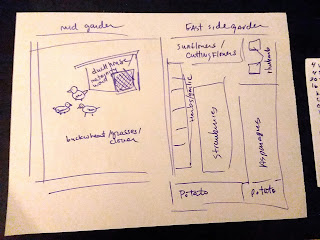 mid garden
East side garden
duck house/
w/
wood
buckwheat/grasses/
clover
sunflowers/
cutting flowers
rhubarb
herbs/garlic
Strawberries
Asparagus
Potato
Potato